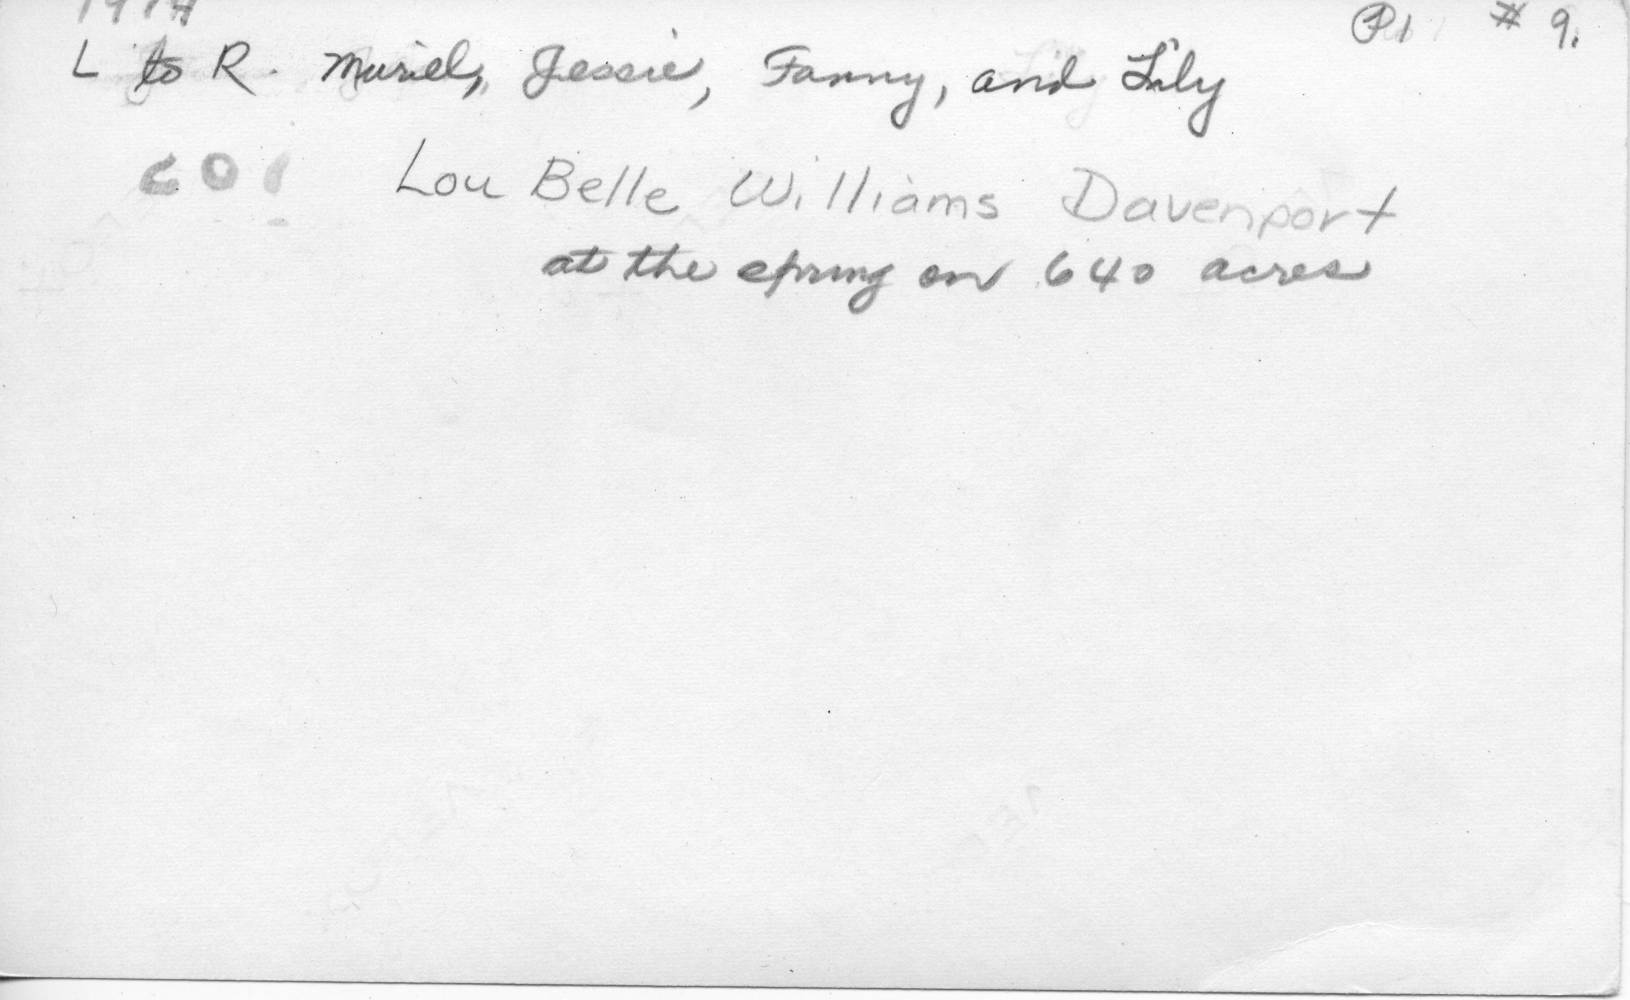 1914
P1 # 9.
L to R. Muriel, Jessie, Fanny, and Lily
Lou Belle Williams Davenport
at the spring on 640 acres